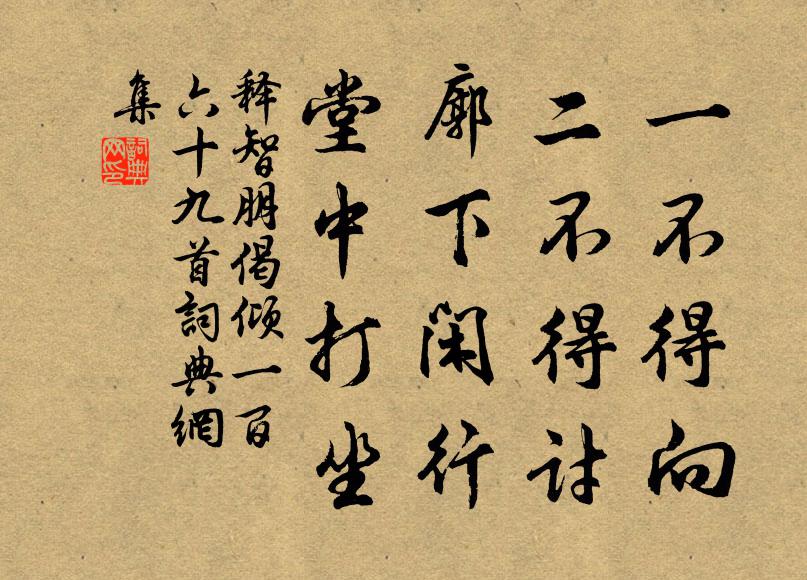 一不得向
二不得討
廓下閑行
堂中打坐
释智朋偈倾一百
六十九首詞典網
集
詞典
网印